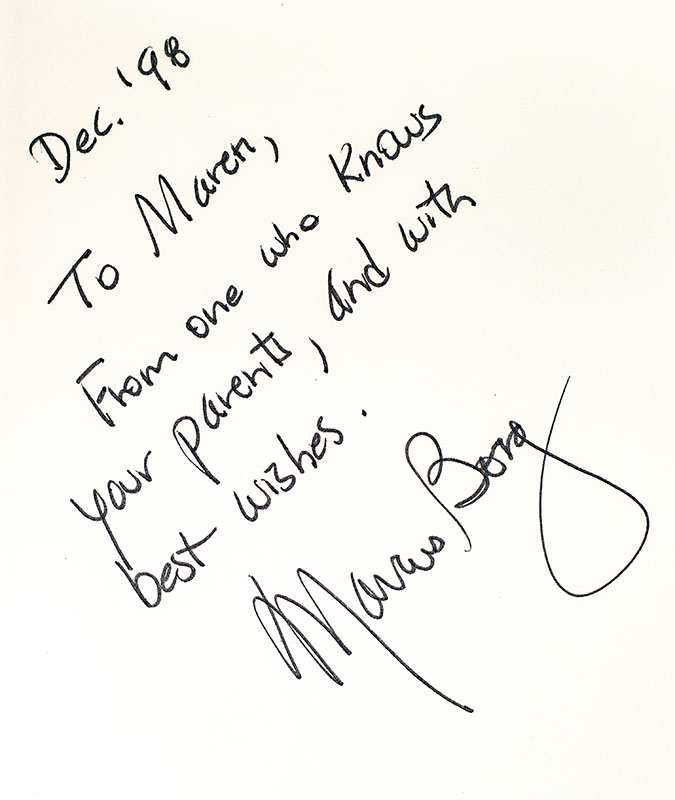 Dec. '98
To Maren,
From one who knows
your parents, and with
best wishes.
Marcus Borg